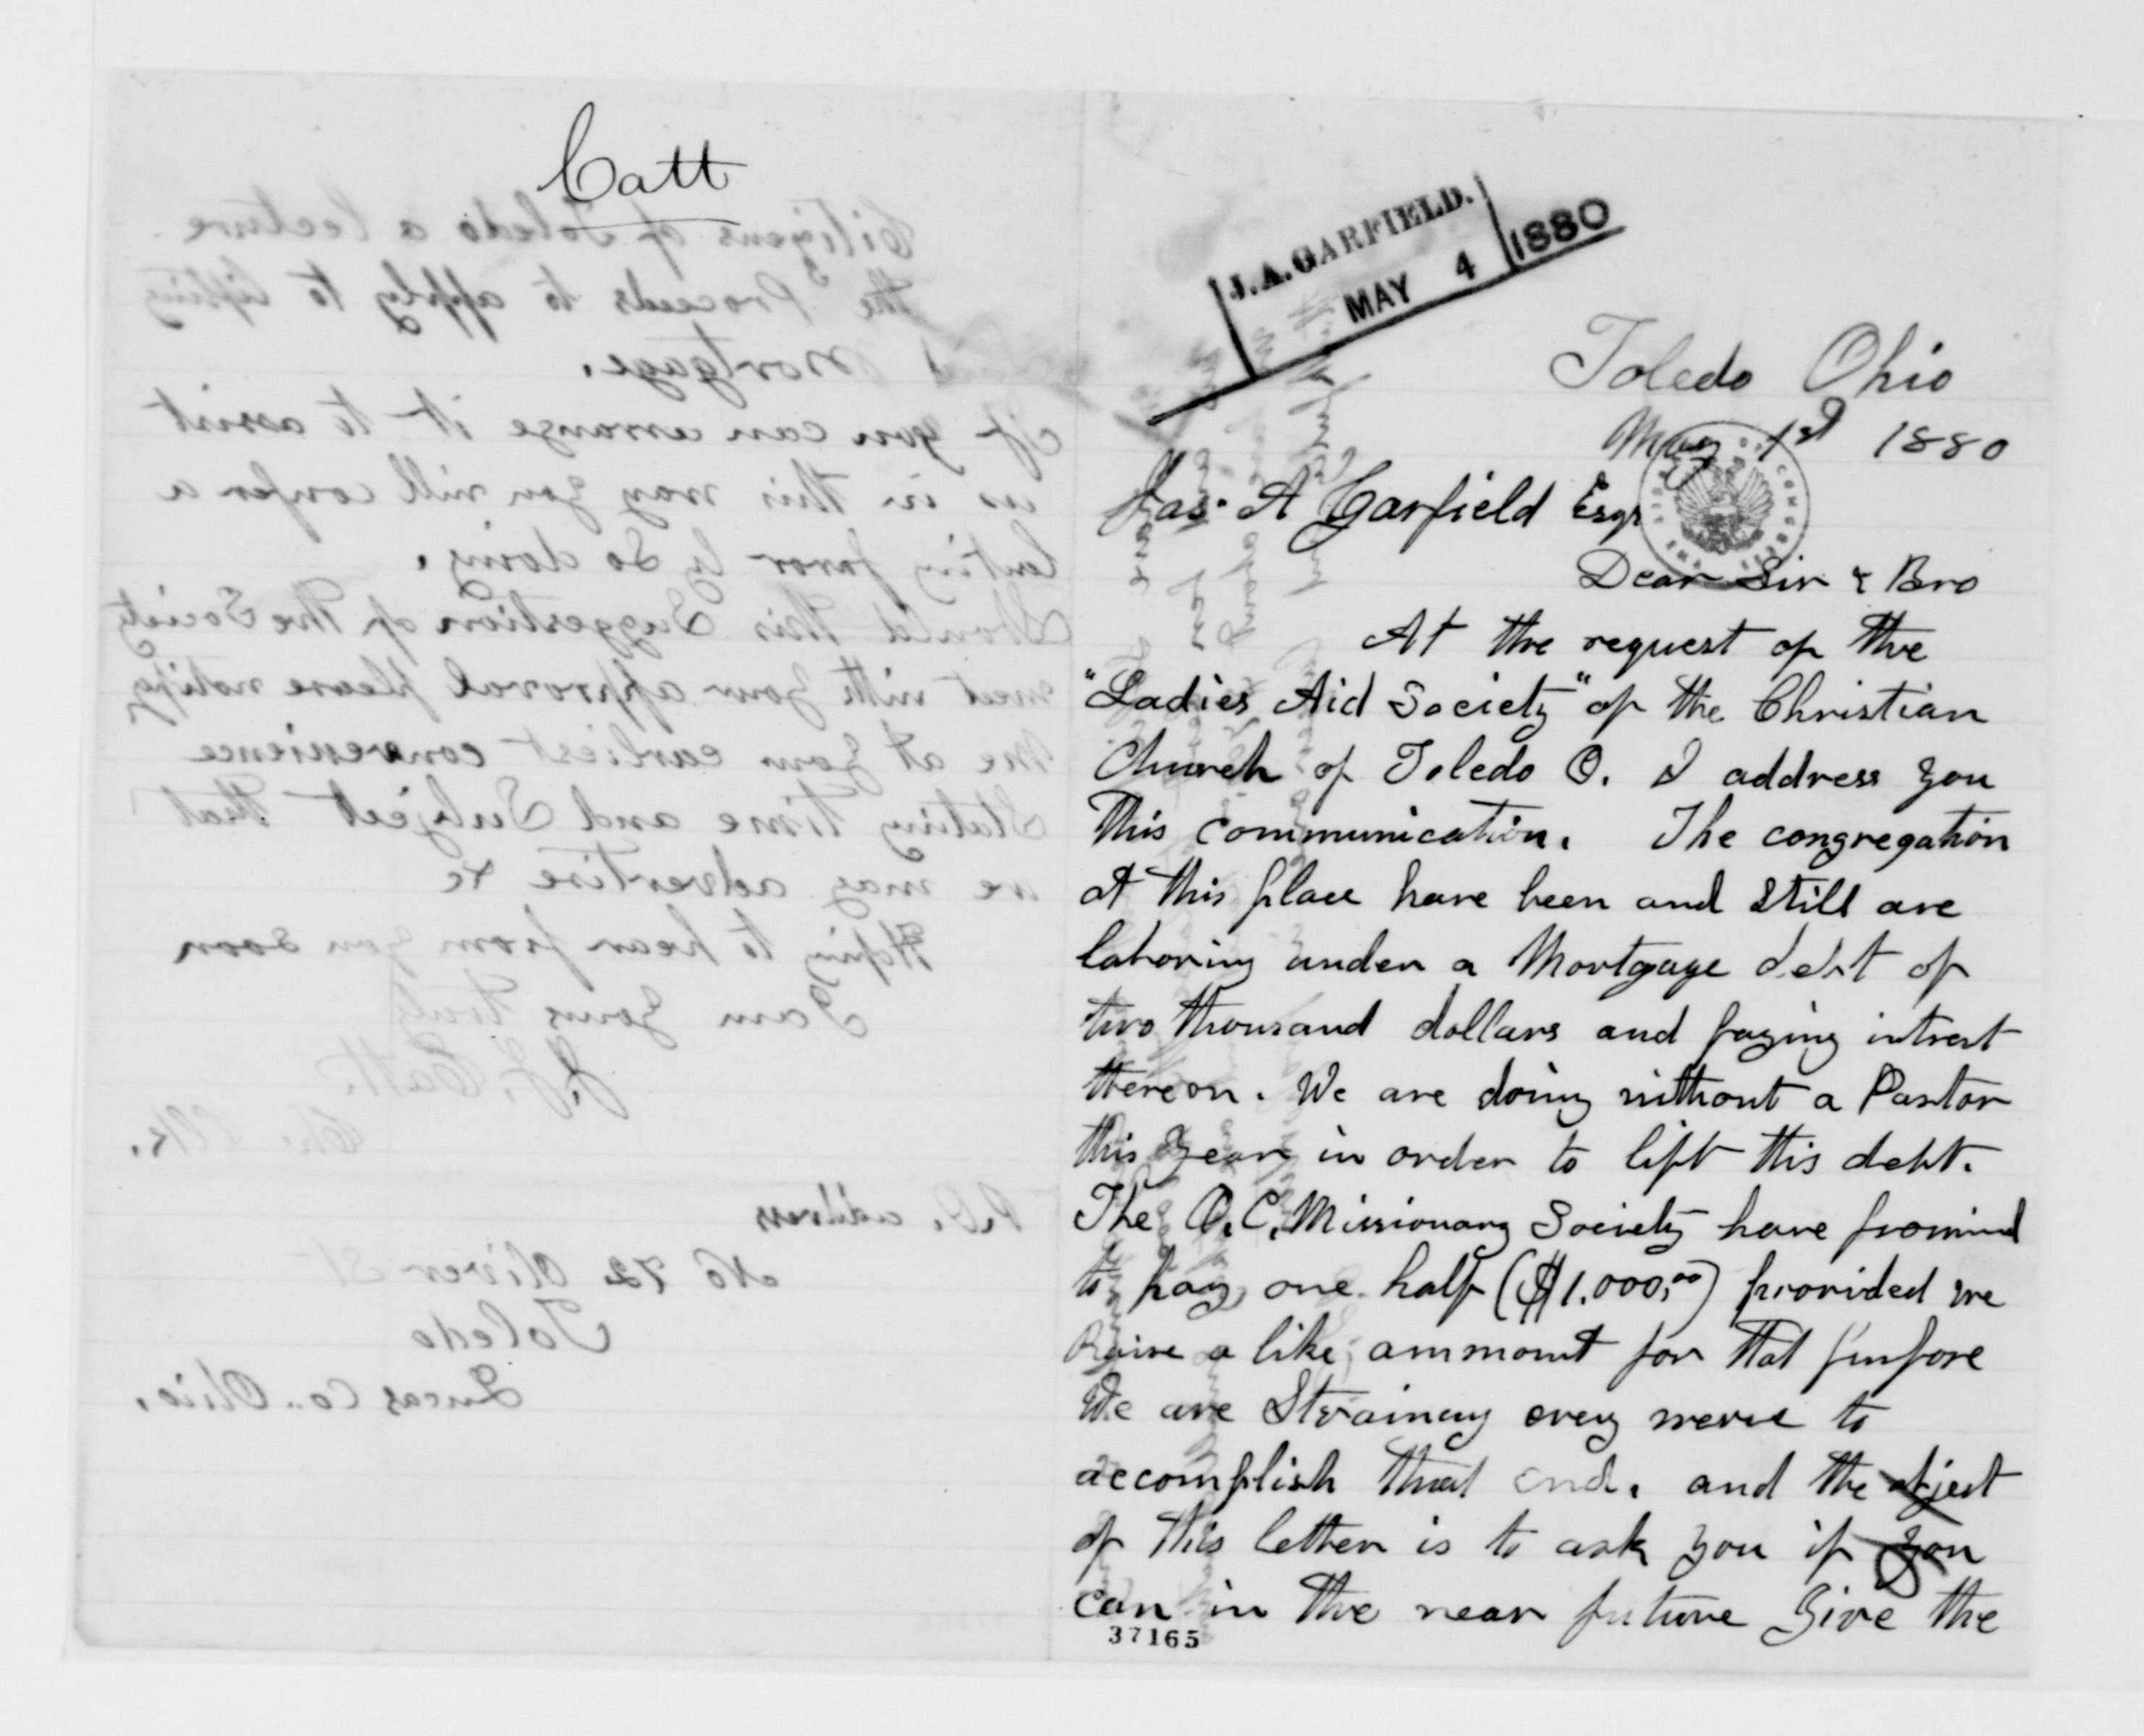 Catt
J.A. GARFIELD.
MAY 4 1880
Toledo Ohio
May 1st 1880
Jas. A Garfield Esqr
Dear Sir & Bro
At the request of the
"Ladies Aid Society" of the Christian
Church of Toledo O. I address you
this communication. The congregation
at this place have been and still are
laboring under a Mortgage debt of
two thousand dollars and paying intrest
thereon. We are doing without a Pastor
this year in order to lift this debt.
The O.C. Missionary Society have promised
to pay one half ($1.000,00) provided we
Raise a like ammount for that purpose
We are Straining every nerve to
accomplish that end. and the object
of this letter is to ask you if you
can in the near future give the
37165
Citizens of Toledo a lecture
the Proceeds to apply to lifting
Mortgage.
If you can arrange it to assist
us in this way you will confer a
lasting favor by so doing.
Should this Suggestion of the Society
meet with your approval please notify
me at your earliest convenience
Stating time and Subject that
we may advertise &c
Hoping to hear from you soon
I am yours truly
Catt
Ch. Clk.
P.O. address
No 72 Oliver St
Toledo
Lucas Co. Ohio.